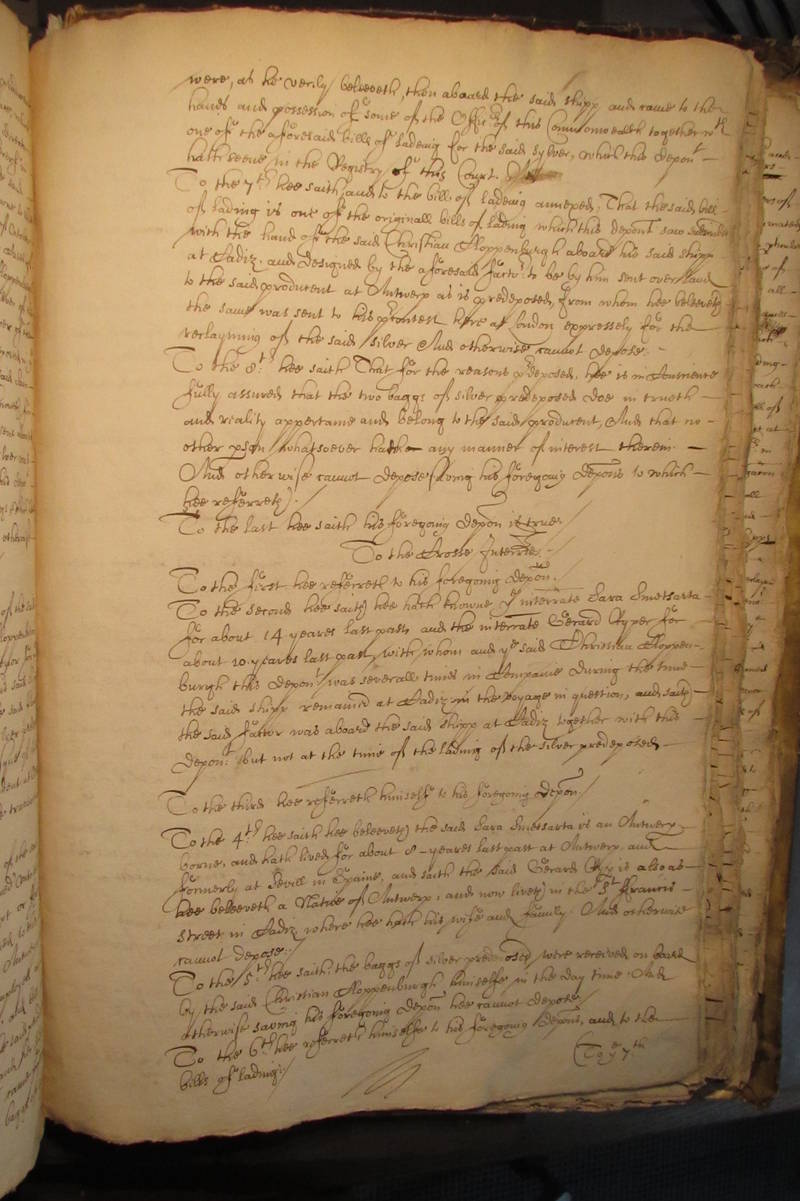 were, as he verily beleeveth, then aboard the said shipp and came to the
hands and possession of some of the Offic.rs of this Commonwealth together wth
one of the aforesaid bills of lading for the said sylver, which this depont
hath seene in the Registry of this Court.
To the 7th hee saith and to the bill of lading annexed, That the said bill
of lading is one of the originall bills of lading which this deponent saw
with the hand of the said Christian Kloppenburgh aboard his said shipp
at Cadiz, and designed by the aforesaid factor to be by him sent over land
to the said producent at Antwerp as is predeposed, from whom hee beleeveth
the same was sent to his here at London expressely for the
reclayming of the said silver And otherwise cannot depose.
To the 8th hee saith That for the reasons predeposed, hee is in Conscience
fully assured that the two baggs of silver predeposed doe in trueth
and reality appertaine and belong to the said producent, And that no
other pson whatsoever hath any manner of interest therein
And otherwise cannot depose saving his foregoing deposn to which
hee referreth.
To the last hee saith his foregoing depon is true
To the Crosse Interries.
To the first hee referreth to his foregoing depon.
To the second hee saith hee hath knowne ye interrate Sara Smetsarta
for about 14 yeares last past, and the interrate Gerard Kyper for
about 10 yeares last past, with whom and ye said Christian Kloppen-
burgh this depont was severall times in Companie during the time
the said shipp remained at Cadiz in the voyage in question, and saith
the said factor was aboard the said shipp at Cadiz together with this
depont but not at the time of the lading of the silver predeposed
To the third hee referreth himselfe to his foregoing depon
To the 4th hee saith hee beleeveth the said Sara Smetsarta is an Antwerp
borne, and hath lived for about 8 yeares last past at Antwerp and
formerly at Sevill in Spaine, and saith the said Gerard is also as
hee beleeveth a Native of Antwerp, and now liveth in the St Francis
street in Cadiz where hee hath his wife and family And otherwise
cannot depose.
To the 5th hee saith the baggs of silver predeposed were received on board
by the said Christian Kloppenburgh himselfe in the day time And
otherwise saving his foregoing depon hee cannot depose
To the 6th hee referreth himselfe to his foregoing depont, and to the
bills of lading.
(To ye 7th